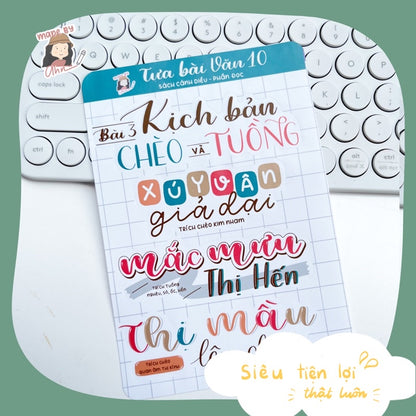 maps by
Tựa bài Văn 10
SÁCH CÁNH DIỀU - PHẦN ĐỌC
Bài 3 Kịch bản
CHÈO VÀ TUỒNG
XÚY VÂN
giả dại
TRÍCH CHÈO KIM NHAM
mắc mưu
Thị Hến
TRÍCH TUỒNG
NGHÊU, SÒ, ỐC, HẾN
Thị mầu
TRÍCH CHÈO
QUAN ÂM THỊ KÍNH
lên chùa
caps lock
shift
fn
ctrl
alt
alt
ctrl
Siêu tiện lợi
thật luôn